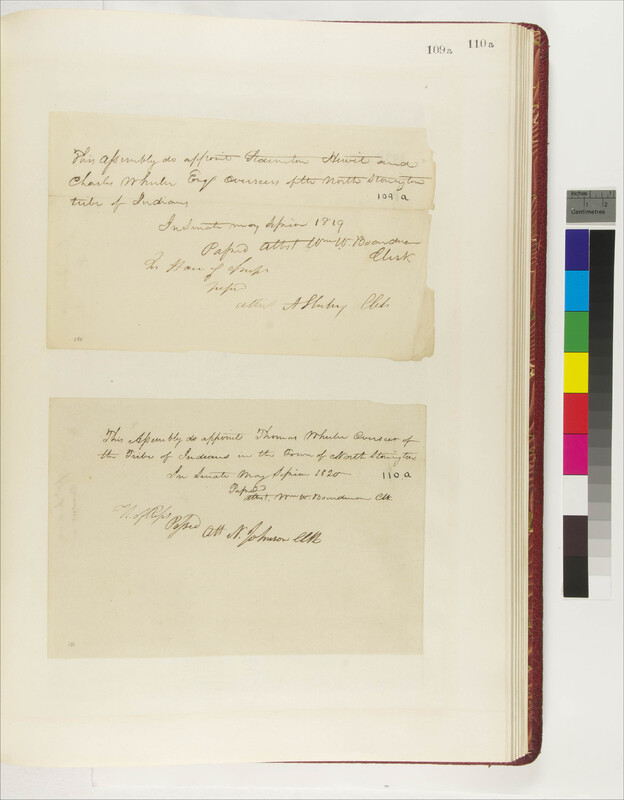 109a 110a
This Assembly do appoint Staunton Hewit and
Charles Wheeler Esqr Overseers of the North Stonington
tribe of Indians
109 a
In Senate May Session 1819
Passed Attest Wm W. Boardman
Clerk
In House of
Passed
attest Clk
This Assembly do appoint Thomas Wheeler Overseer of
the Tribe of Indians in the Town of North Stonington
In Senate May Session 1820
110 a
Passed
attest, Wm W. Boardman Clk
Passed
Att N. Johnson Clk
inches
1 2
Centimetres